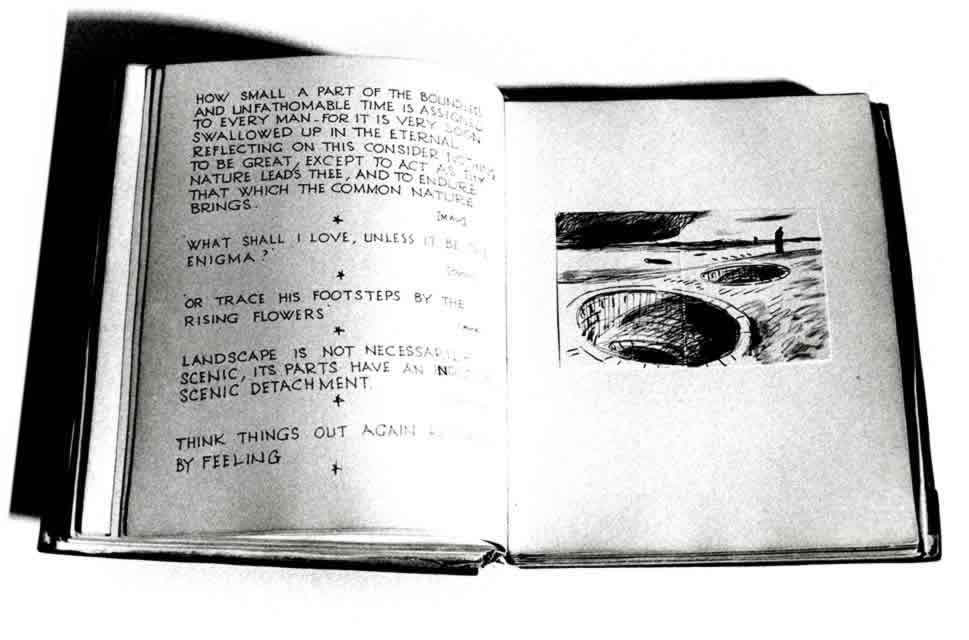 HOW SMALL A PART OF THE BOUNDLESS
AND UNFATHOMABLE TIME IS ASSIGNED
TO EVERY MAN - FOR IT IS VERY SOON
SWALLOWED UP IN THE ETERNAL.
REFLECTING ON THIS CONSIDER NOTHING
TO BE GREAT, EXCEPT TO ACT AS THY
NATURE LEADS THEE, AND TO ENDURE
THAT WHICH THE COMMON NATURE
BRINGS.
'WHAT SHALL I LOVE, UNLESS IT BE THE
ENIGMA?'
'OR TRACE HIS FOOTSTEPS BY THE
RISING FLOWERS'
LANDSCAPE IS NOT NECESSARILY
SCENIC, ITS PARTS HAVE AN
SCENIC DETACHMENT.
THINK THINGS OUT AGAIN
BY FEELING